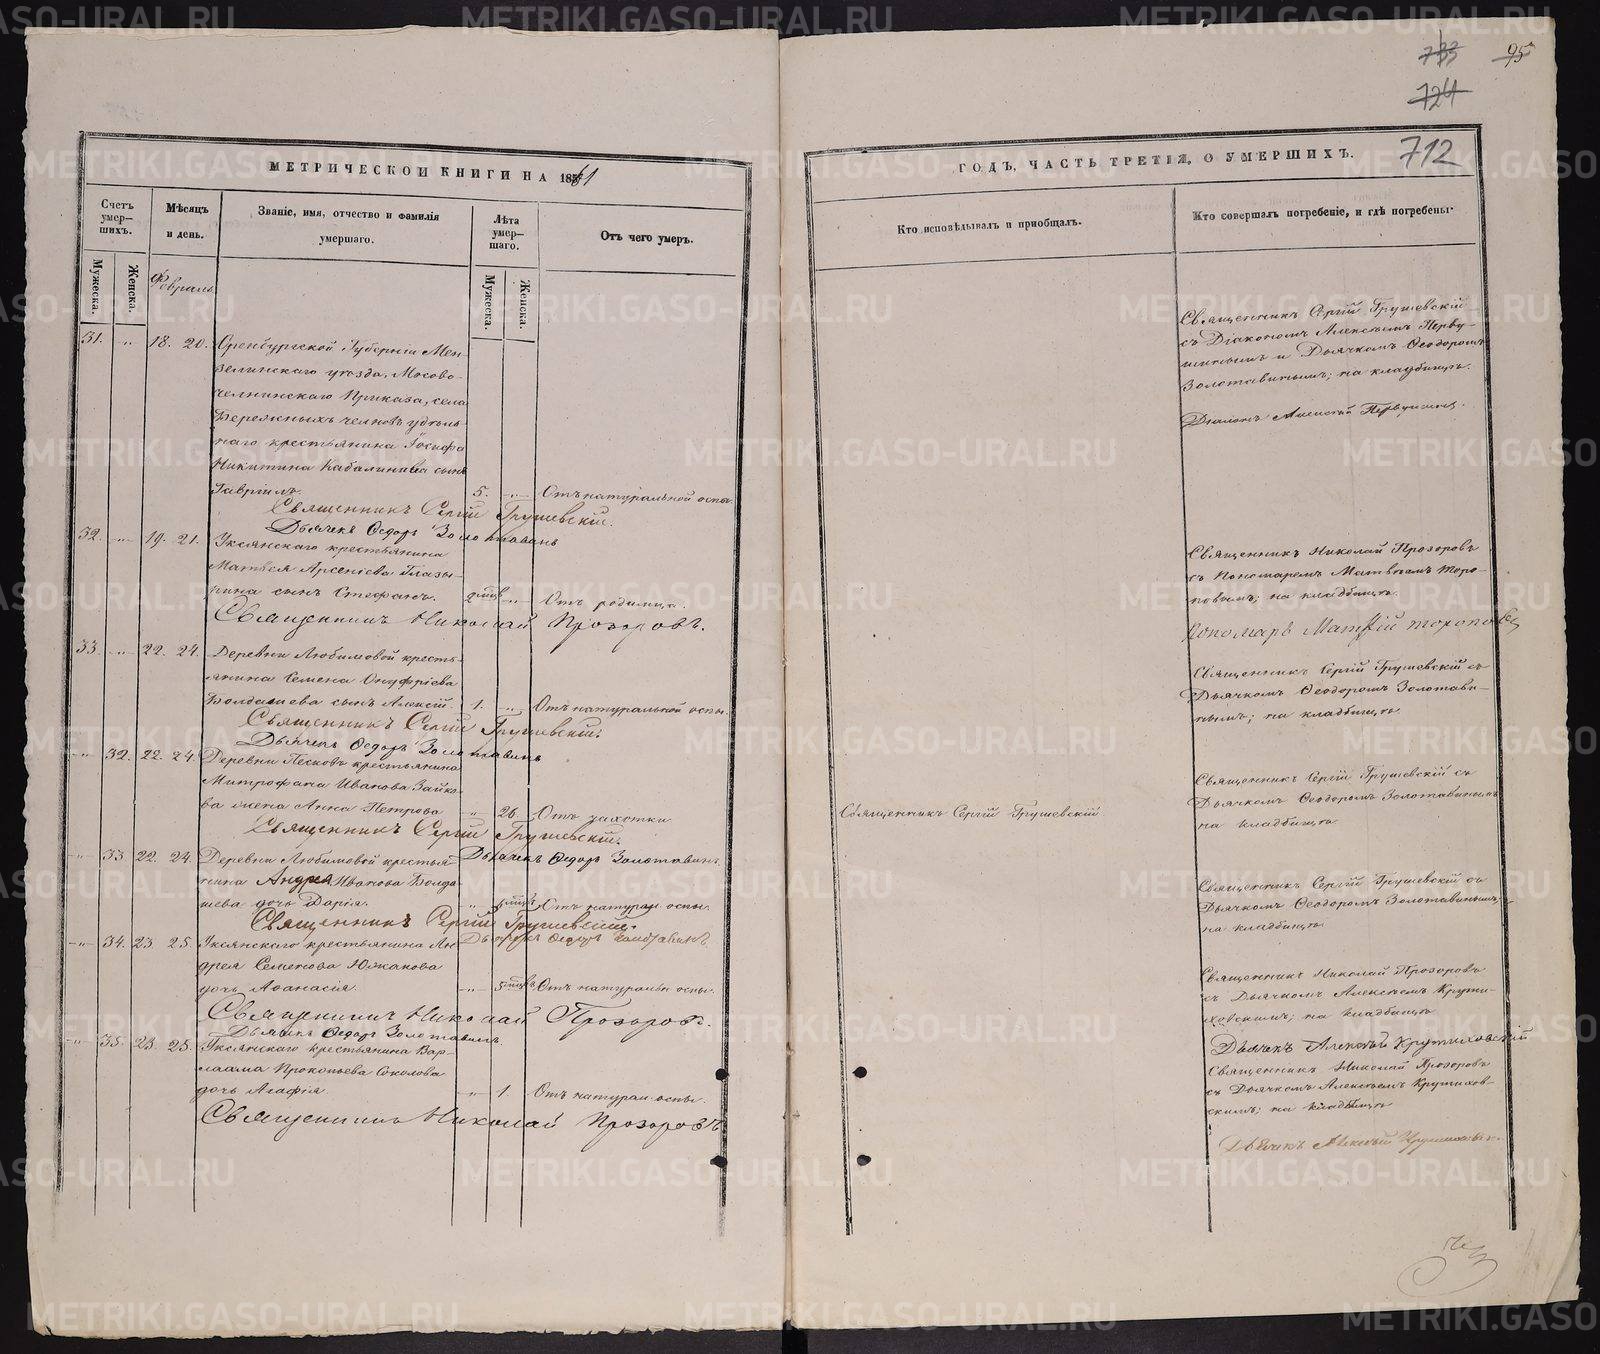 733 95
724
МЕТРИЧЕСКОЙ КНИГИ НА 1861
ГОДЪ, ЧАСТЬ ТРЕТІЯ, О УМЕРШИХЪ. 712
Счетъ умер-шихъ.
Мѣсяцъ и день.
Званіе, имя, отчество и фамилія умершаго.
Лѣта умер-шаго.
Отъ чего умеръ.
Кто исповѣдывалъ и пріобщалъ.
Кто совершалъ погребеніе, и гдѣ погребены.
Мужеска.
Женска.
Мужеска.
Женска.
Февраль
31. „ 18. 20. Оренбургской Губерніи Мен-
зелинскаго уѣзда, Мосово-
челнинскаго Приказа, села
Бережныхъ челновъ удѣль-
наго крестьянина Іосифа
Никитина Кабалинова сынъ
Гавріилъ. 5. „ Отъ натуральной оспы.
Священникъ Сергій Грушевскій.
Дьячекъ Ѳедоръ Золотавинъ
Священникъ Сергій Грушевскій
съ Діакономъ Алексѣемъ Перву-
шинымъ и Дьячкомъ Ѳеодоромъ
Золотавинымъ; на кладбищѣ.
Діаконъ Алексѣй Первушинъ.
32. „ 19. 21. Уксянскаго крестьянина
Матвея Арсеніева Глазы-
рина сынъ Стефанъ. 2 мѣсц „ Отъ родимца.
Священникъ Николай Прозоровъ.
Священникъ Николай Прозоровъ
съ Пономаремъ Матвѣемъ Торо-
повымъ; на кладбищѣ.
Пономарь Матѳій Тороповъ
33. „ 22. 24. Деревни Любимовой кресть-
янина Семена Онуфріева
Болдашева сынъ Алексій. 1. „ Отъ натуральной оспы.
Священникъ Сергій Грушевскій.
Дьячекъ Ѳедоръ Золотавинъ
Священникъ Сергій Грушевскій съ
Дьячкомъ Ѳеодоромъ Золотави-
нымъ; на кладбищѣ.
„ 32. 22. 24. Деревни Песковъ крестьянина
Митрофана Иванова Зайко-
ва жена Анна Петрова „ 26. Отъ чахотки
Священникъ Сергій Грушевскій.
Дьячекъ Ѳедоръ Золотавинъ.
Священникъ Сергій Грушевскій
Священникъ Сергій Грушевскій съ
Дьячкомъ Ѳеодоромъ Золотавинымъ
на кладбищѣ.
„ 33. 22. 24. Деревни Любимовой крестья-
нина Андрея Иванова Болда-
шева дочь Дарія. „ Отъ натурал. оспы.
Священникъ Сергій Грушевскій.
Дьячекъ Ѳедоръ Золотавинъ
Священникъ Сергій Грушевскій съ
Дьячкомъ Ѳеодоромъ Золотавинымъ,
на кладбищѣ.
„ 34. 23 25. Уксянскаго крестьянина Ан-
дрея Семенова Южакова
дочь Аѳанасія. „ 5 мѣсц. Отъ натуральн. оспы.
Священникъ Николай Прозоровъ.
Дьячекъ Ѳедоръ Золотавинъ.
Священникъ Николай Прозоровъ
съ Дьячкомъ Алексѣемъ Крути-
ховскимъ; на кладбищѣ
Дьячекъ Алексѣй Крутиховскій
„ 35. 23. 25. Уксянскаго крестьянина Вар-
лаама Прокопьева Соколова
дочь Агафія. „ 1. Отъ натурал. оспы.
Священникъ Николай Прозоровъ
Священникъ Николай Прозоровъ
съ Дьячкомъ Алексѣемъ Крутихов-
скимъ; на кладбищѣ
Дьячекъ Алексѣй Крутиховскій
METRIKI.GASO-URAL.RU